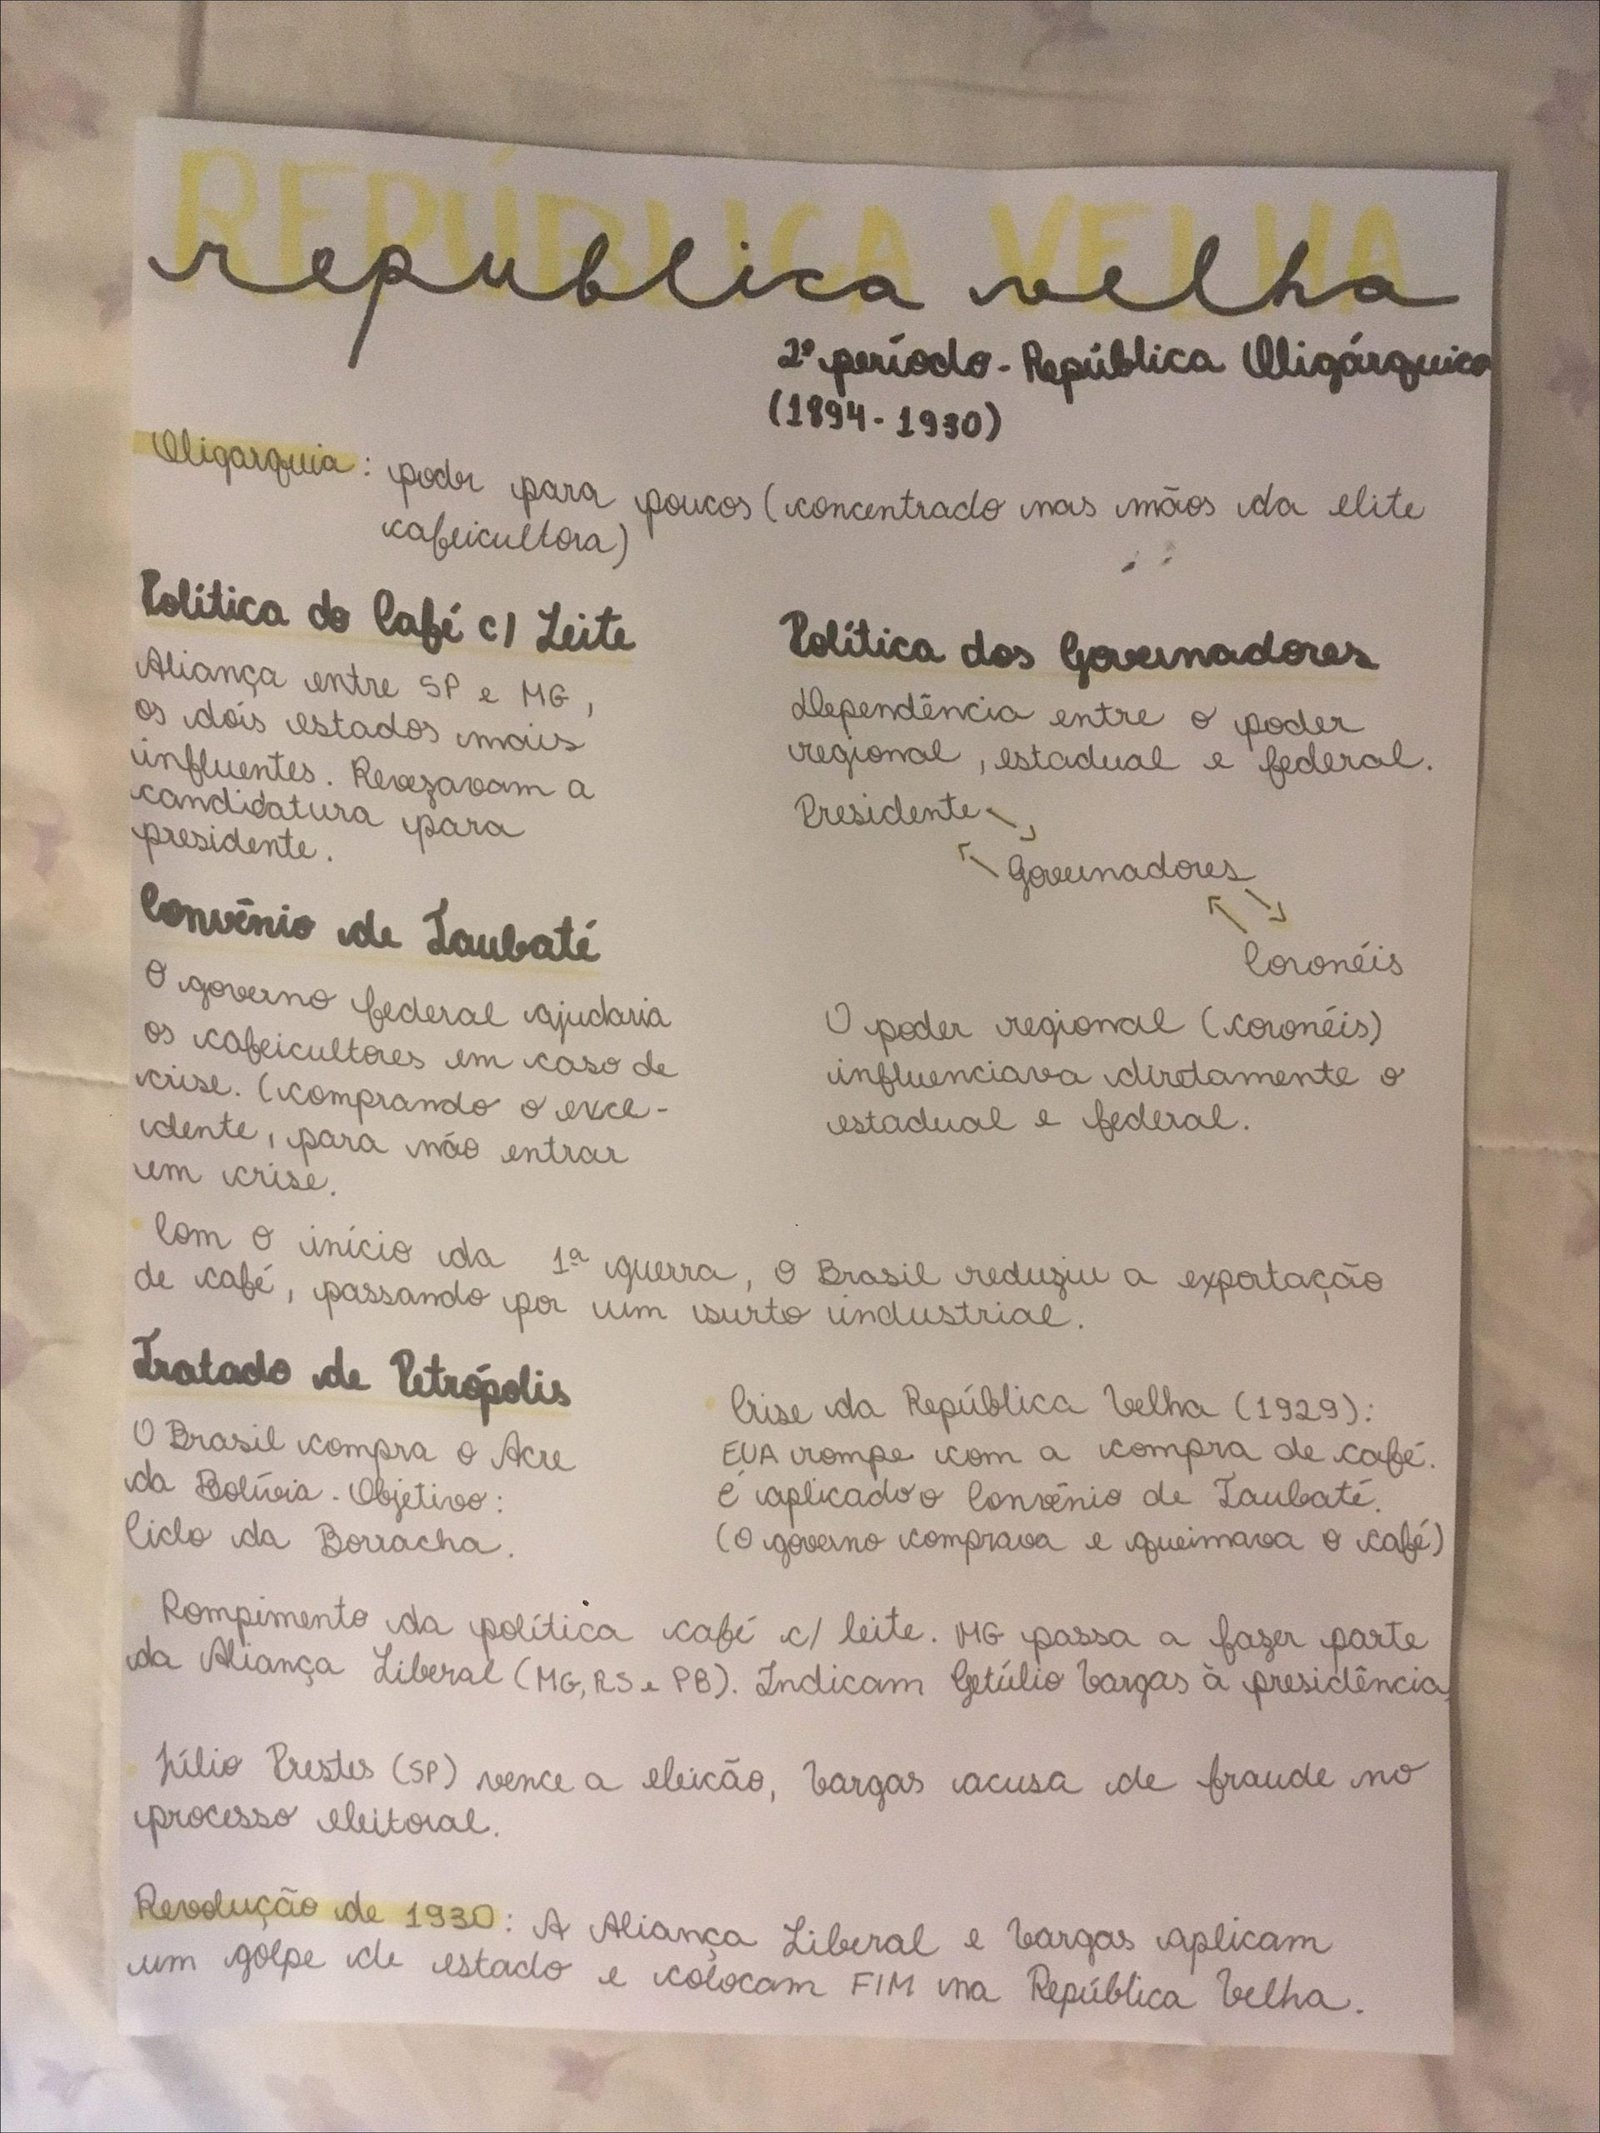 REPÚBLICA VELHA
republica velha
2º período - República Oligárquica
(1894 - 1930)
Oligarquia: poder para poucos (concentrado nas mãos da elite
cafeicultora)
Política do Café c/ Leite
Aliança entre SP e MG,
os dois estados mais
influentes. Revezavam a
candidatura para
presidente.
Convênio de Taubaté
O governo federal ajudaria
os cafeicultores em caso de
crise. (comprando o exce-
dente, para não entrar
em crise.
Política dos Governadores
Dependência entre o poder
regional, estadual e federal.
Presidente
Governadores
Coronéis
O poder regional (coronéis)
influenciava diretamente o
estadual e federal.
Com o início da 1ª guerra, o Brasil reduziu a exportação
de café, passando por um surto industrial.
Tratado de Petrópolis
O Brasil compra o Acre
da Bolívia. Objetivo:
Ciclo da Borracha.
Crise da República Velha (1929):
EUA rompe com a compra de café.
É aplicado o Convênio de Taubaté.
(O governo comprava e queimava o café)
Rompimento da política café c/ leite. MG passa a fazer parte
da Aliança Liberal (MG, RS e PB). Indicam Getúlio Vargas à presidência,
Júlio Prestes (SP) vence a eleicão, Vargas acusa de fraude no
processo eleitoral.
Revolução de 1930: A Aliança Liberal e Vargas aplicam
um golpe de estado e colocam FIM na República Velha.